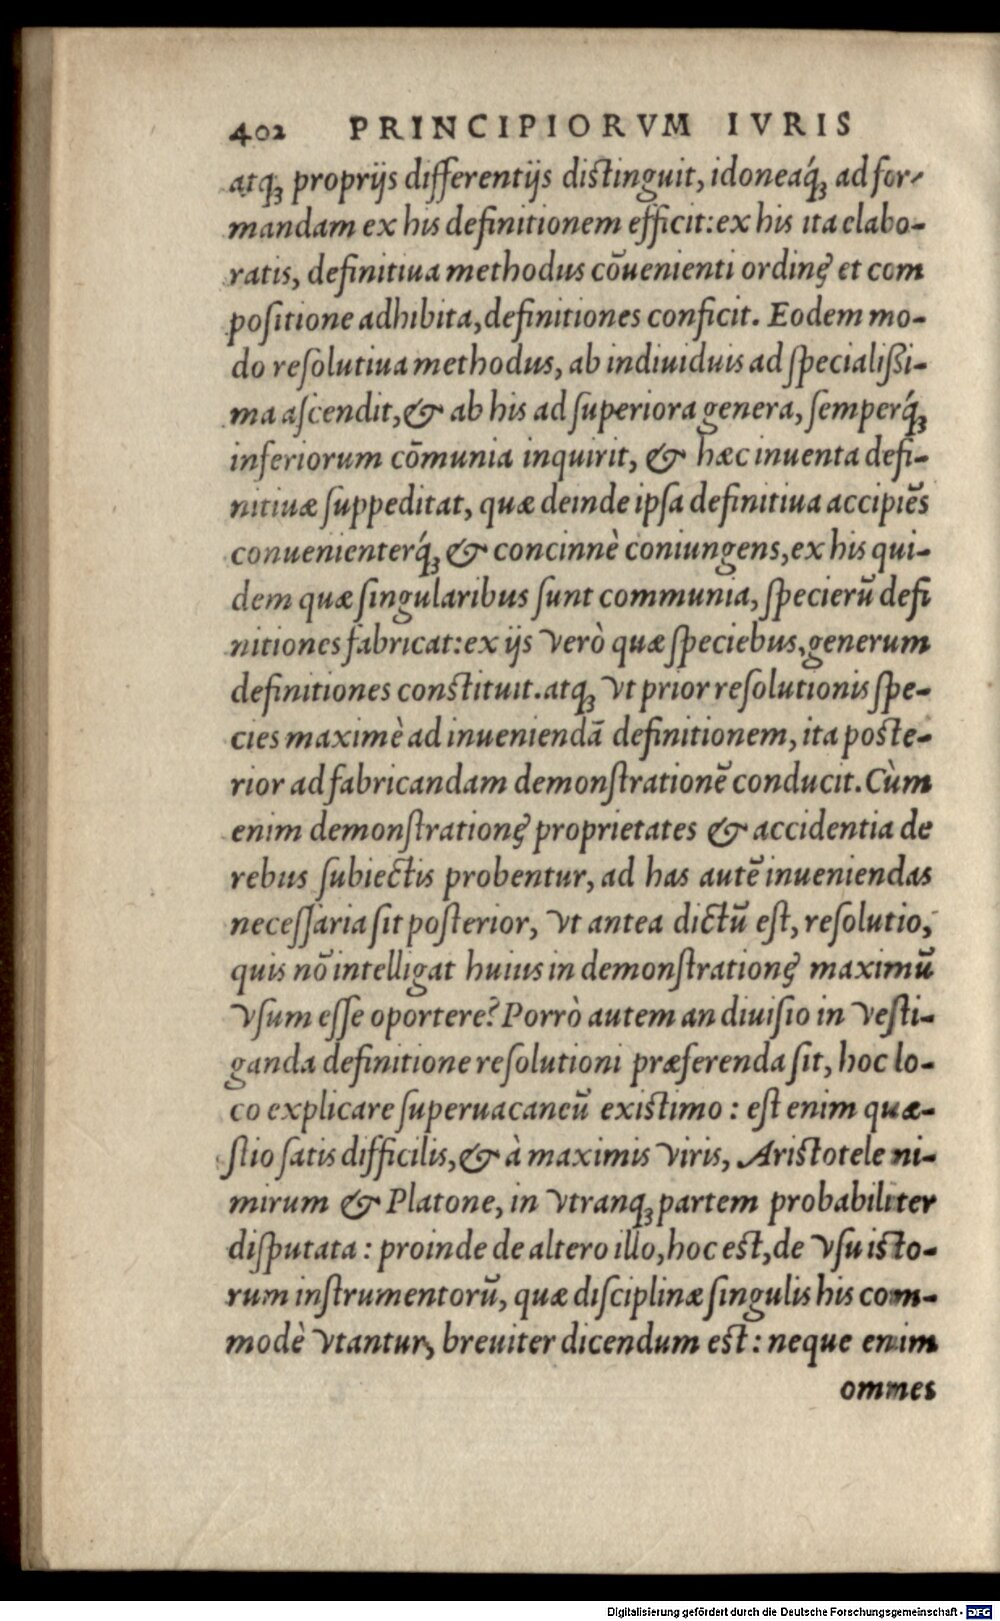 402 PRINCIPIORVM IVRIS
atq́ꝫ proprijs differentijs distinguit, idoneaq́ꝫ ad for-
mandam ex his definitionem efficit: ex his ita elabo-
ratis, definitiua methodus cōuenienti ordinę et com
positione adhibita, definitiones conficit. Eodem mo-
do resolutiua methodus, ab indiuiduis ad specialißi-
ma ascendit, & ab his ad superiora genera, semperq́ꝫ
inferiorum cōmunia inquirit, & hæc inuenta defi-
nitiuæ suppeditat, quæ deinde ipsa definitiua accipiēs
conuenienterq́ꝫ & concinnè coniungens, ex his qui-
dem quæ singularibus sunt communia, specierū defi
nitiones fabricat: ex ijs verò quæ speciebus, generum
definitiones constituit. atqꝫ vt prior resolutionis spe-
cies maximè ad inueniendā definitionem, ita poste-
rior ad fabricandam demonstrationē conducit. Cùm
enim demonstrationę proprietates & accidentia de
rebus subiectis probentur, ad has autē inueniendas
necessaria sit posterior, vt antea dictū est, resolutio,
quis nō intelligat huius in demonstrationę maximū
vsum esse oportere? Porrò autem an diuisio in vesti-
ganda definitione resolutioni præferenda sit, hoc lo-
co explicare superuacaneū existimo: est enim quæ-
stio satis difficilis, & à maximis viris, Aristotele ni-
mirum & Platone, in vtranqꝫ partem probabiliter
disputata: proinde de altero illo, hoc est, de vsu isto-
rum instrumentorū, quæ disciplinæ singulis his com-
modè vtantur, breuiter dicendum est: neque enim
omnes
Digitalisierung gefördert durch die Deutsche Forschungsgemeinschaft - DFG